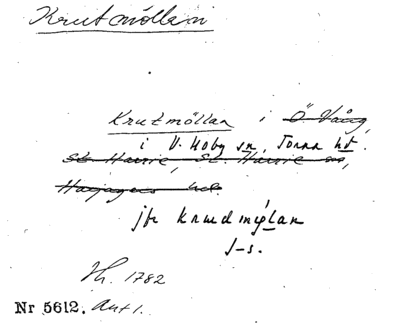 Krutmöllan
Krutmöllan i Ö Vång,
i V. Hoby sn, Torna hd.
St Harrie, St. Harrie sn,
Harjagers hd.
jfr krudmýlan
J-s.
1782
Nr 5612. Ant 1.